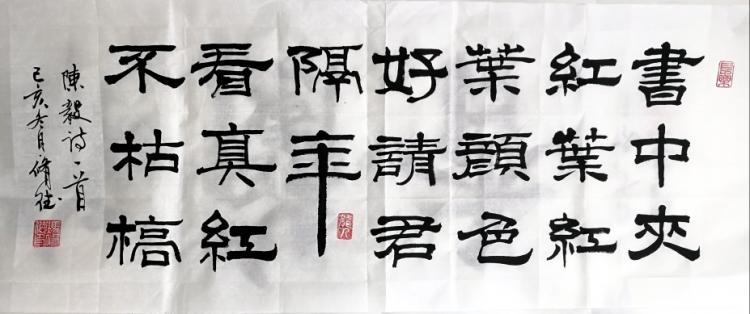 書中夾
紅葉紅
葉顏色
好請君
隔年
看真紅
不枯槁
陳毅詩一首
己亥冬月脩德